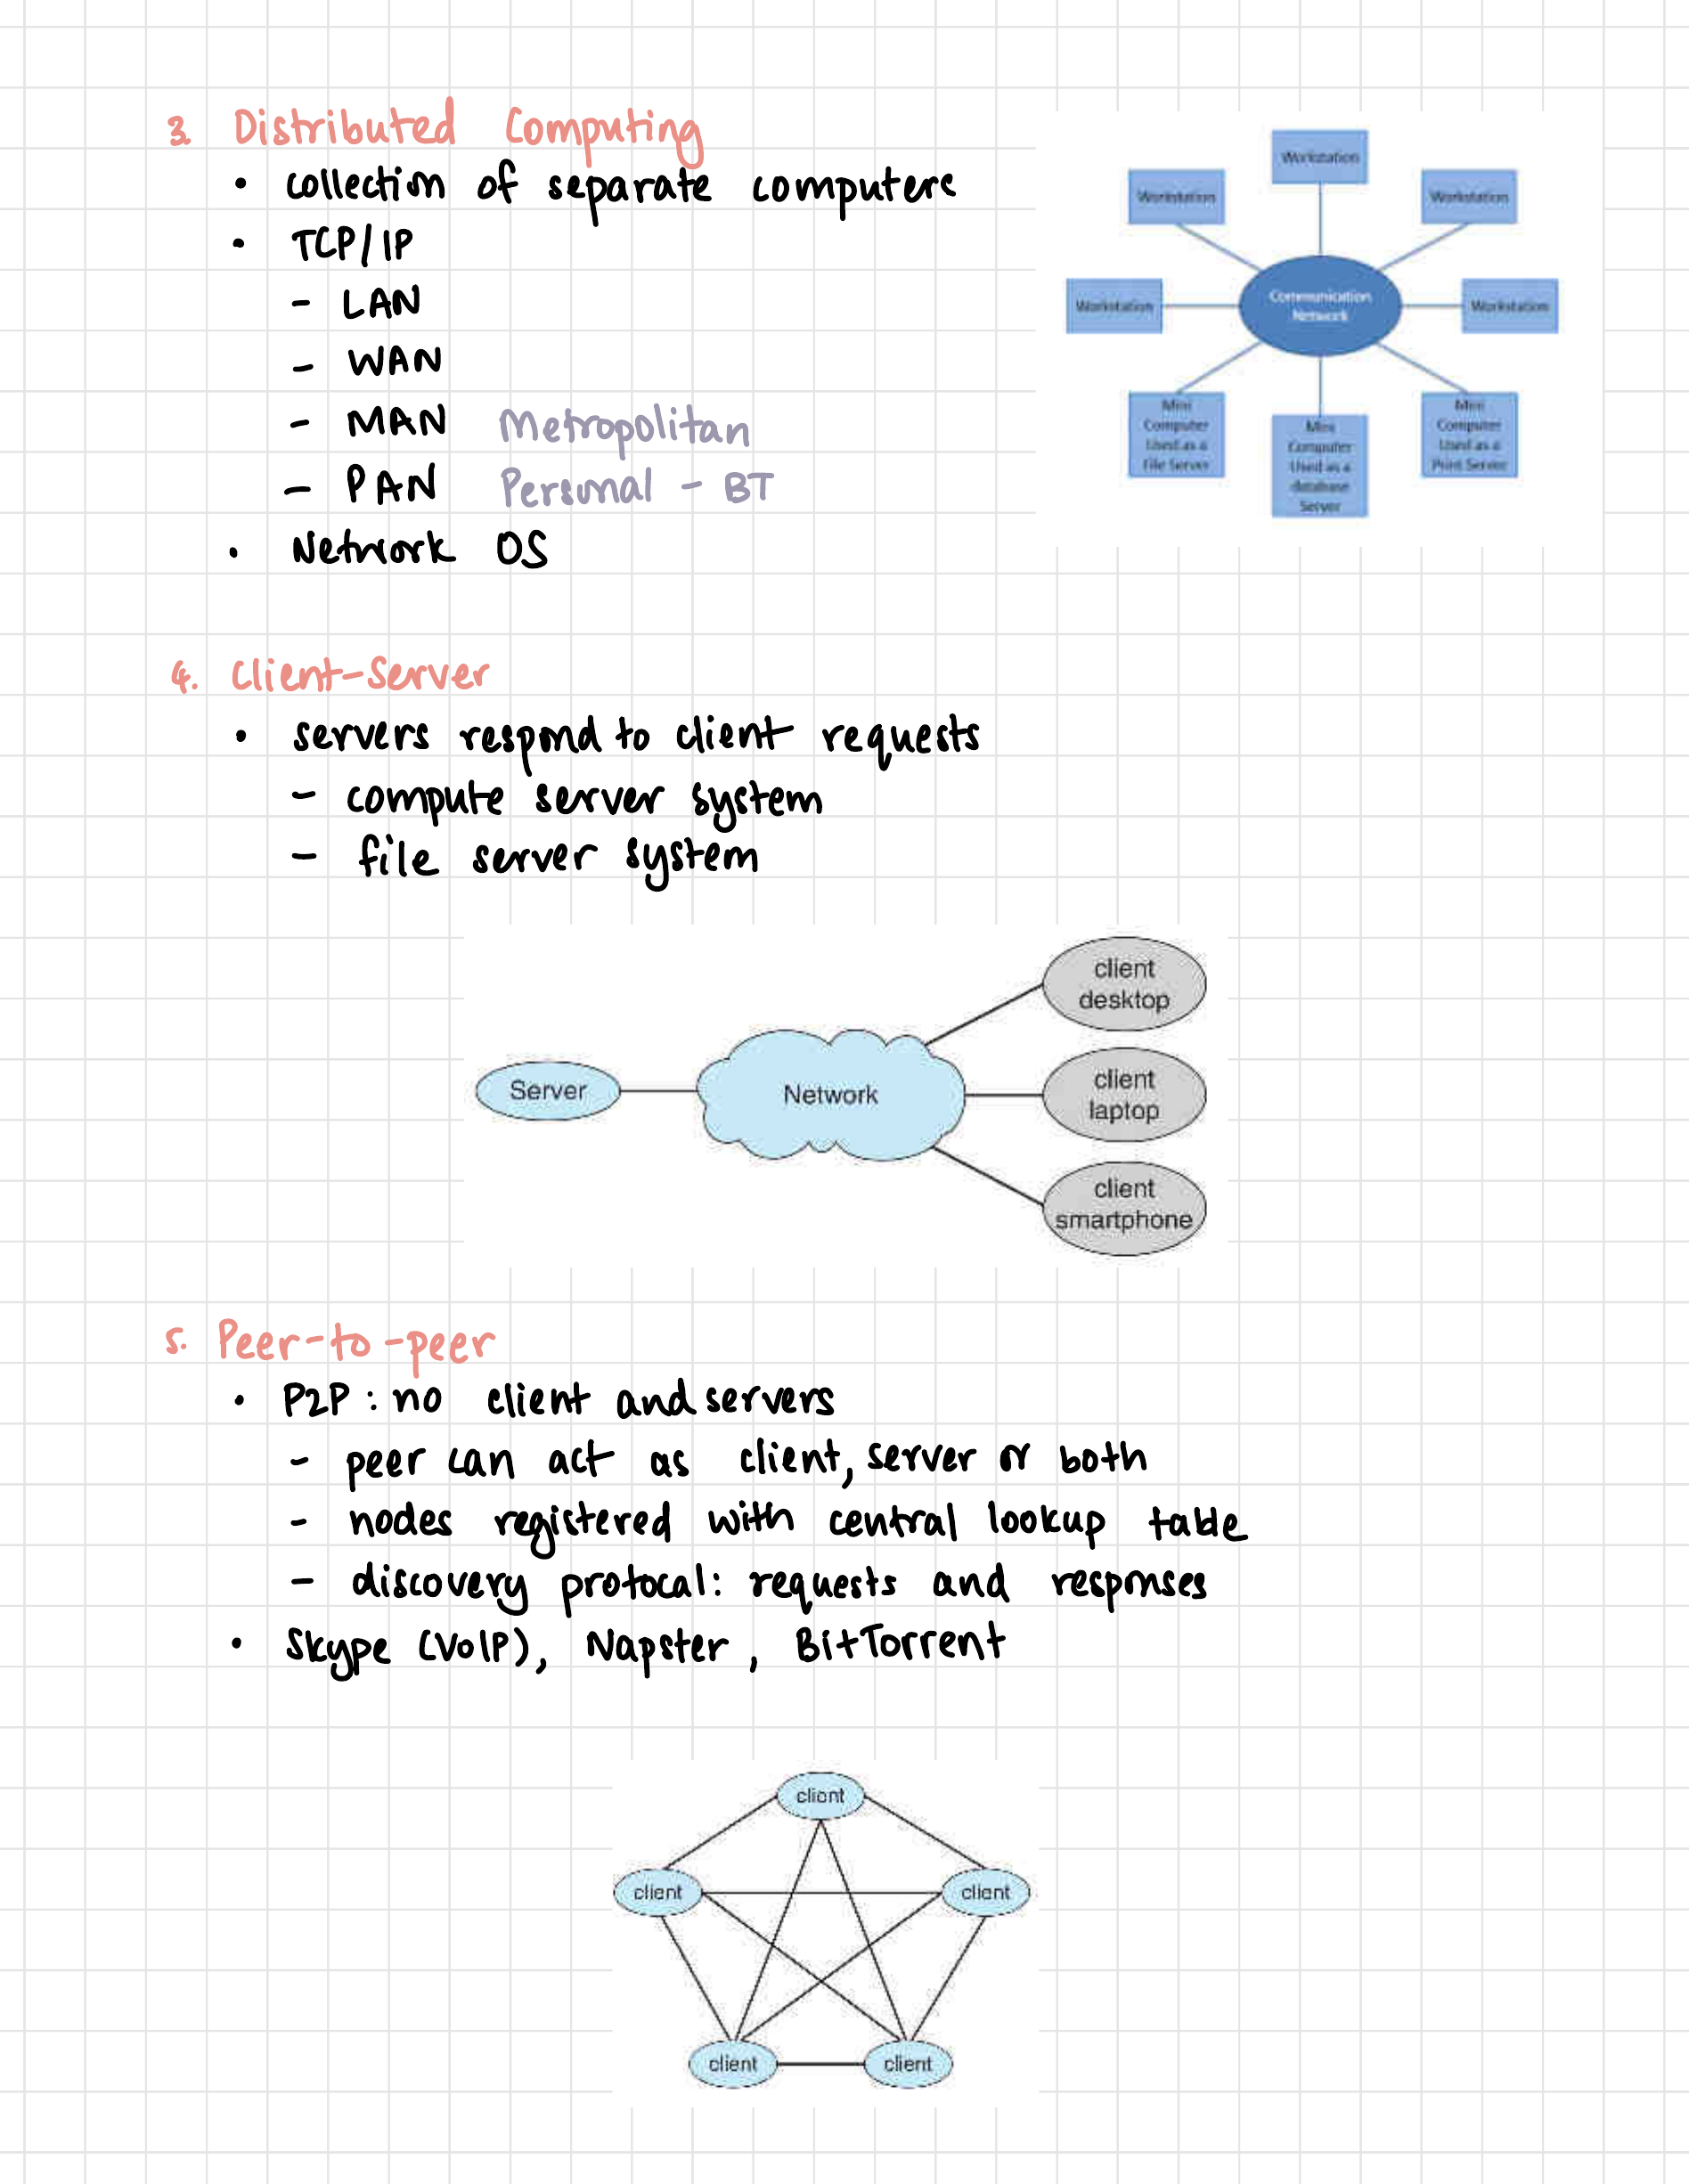 3. Distributed Computing
• collection of separate computers
• TCP/IP
- LAN
- WAN
- MAN Metropolitan
- PAN Personal - BT
• Network OS
Workstation
Workstation
Workstation
Workstation
Communication
Network
Workstation
Mini
Computer
Used as a
File Server
Mini
Computer
Used as a
database
Server
Mini
Computer
Used as a
Print Server
4. Client-Server
• servers respond to client requests
- compute server system
- file server system
client
desktop
Server
Network
client
laptop
client
smartphone
5. Peer-to-peer
• P2P : no client and servers
- peer can act as client, server or both
- nodes registered with central lookup table
- discovery protocal: requests and responses
• Skype (VoIP), Napster, BitTorrent
client
client
client
client
client